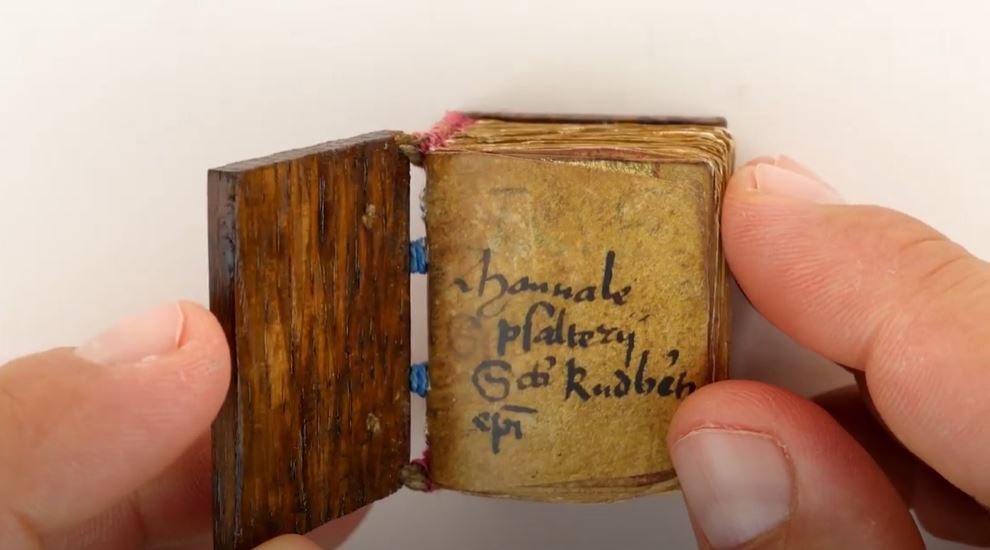 Manuale
psalterij
Scti Rudb'ti
epi